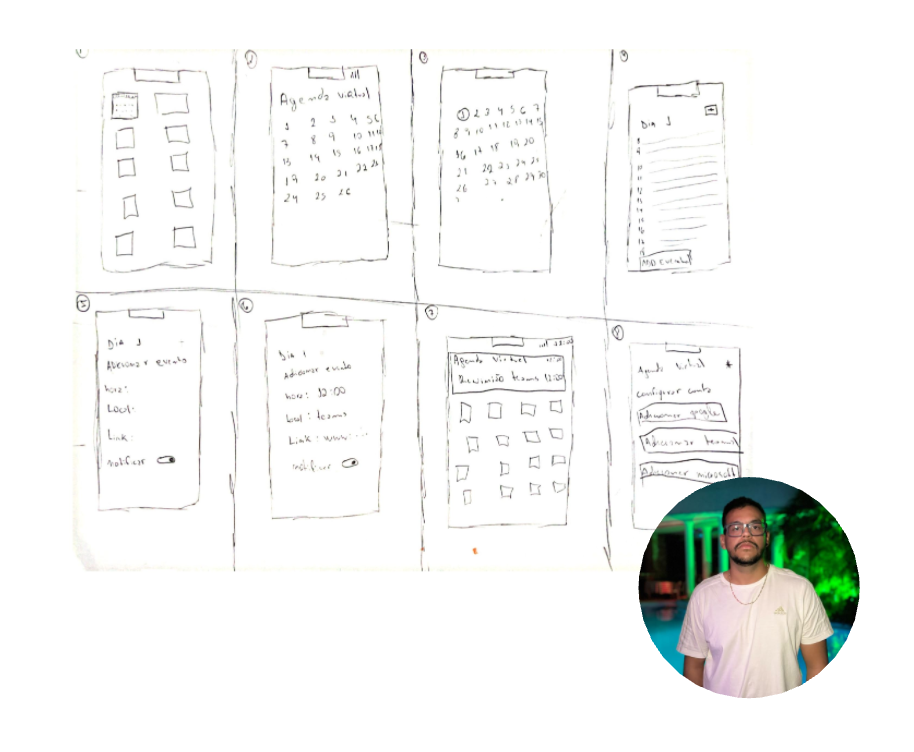 1
2
Agenda virtual
1 2 3 4 5 6
7 8 9 10 11 12
13 14 15 16 17 18
19 20 21 22 23
24 25 26
3
1 2 3 4 5 6 7
8 9 10 11 12 13 14 15
16 17 18 19 20
21 22 23 24 21
26 27 28 29 30
4
Dia 1
8
9
10
11
12
13
14
15
16
5
Dia 1
Adicionar evento
hora:
Local:
Link:
notificar
6
Dia 1
Adicionar evento
hora: 12:00
local: teams
Link: www...
notificar
7
12:00
Agenda Virtual
Reunião teams 12:00
8
Agenda virtual
configurar conta
Adicionar google
Adicionar teams
Adicionar microsoft
adidas